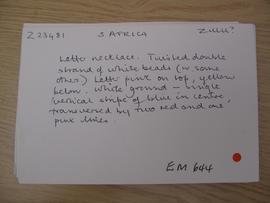 Z 23481 S. AFRICA ZULU?
Letter necklace. Twisted double
strand of white beads (w. some
other.) Letter pink on top, yellow
below. White ground – single
vertical stripe of blue in centre,
transversed by two red and one
pink lines.
EM 644